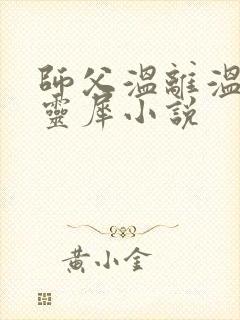 師父溫離溫
靈犀小說
黃小金